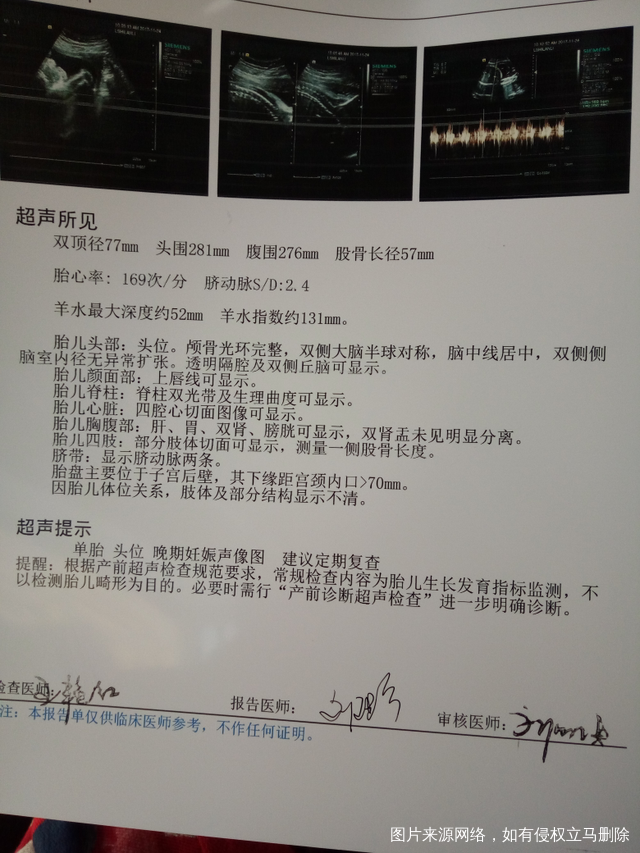 SIEMENS
超声所见
双顶径77mm 头围281mm 腹围276mm 股骨长径57mm
胎心率: 169次/分 脐动脉S/D:2.4
羊水最大深度约52mm 羊水指数约131mm。
胎儿头部: 头位。颅骨光环完整, 双侧大脑半球对称, 脑中线居中, 双侧侧
脑室内径无异常扩张。透明隔腔及双侧丘脑可显示。
胎儿颜面部: 上唇线可显示。
胎儿脊柱: 脊柱双光带及生理曲度可显示。
胎儿心脏: 四腔心切面图像可显示。
胎儿胸腹部: 肝、胃、双肾、膀胱可显示, 双肾盂未见明显分离。
胎儿四肢: 部分肢体切面可显示, 测量一侧股骨长度。
脐带: 显示脐动脉两条。
胎盘主要位于子宫后壁, 其下缘距宫颈内口>70mm。
因胎儿体位关系, 肢体及部分结构显示不清。
超声提示
单胎 头位 晚期妊娠声像图 建议定期复查
提醒: 根据产前超声检查规范要求, 常规检查内容为胎儿生长发育指标监测, 不
以检测胎儿畸形为目的。必要时需行“产前诊断超声检查”进一步明确诊断。
检查医师:
报告医师:
审核医师:
注: 本报告单仅供临床医师参考, 不作任何证明。
图片来源网络，如有侵权立马删除